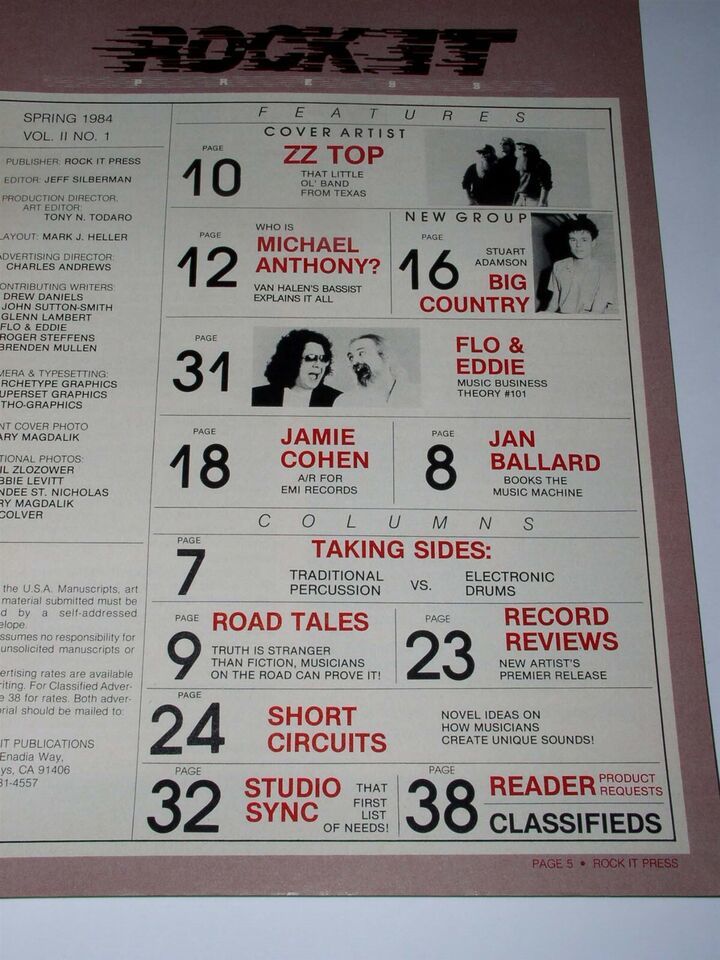 ROCK IT
PRESS
SPRING 1984
VOL. II NO. 1
PUBLISHER: ROCK IT PRESS
EDITOR: JEFF SILBERMAN
PRODUCTION DIRECTOR,
ART EDITOR:
TONY N. TODARO
LAYOUT: MARK J. HELLER
ADVERTISING DIRECTOR:
CHARLES ANDREWS
ONTRIBUTING WRITERS:
DREW DANIELS
JOHN SUTTON-SMITH
GLENN LAMBERT
FLO & EDDIE
ROGER STEFFENS
BRENDEN MULLEN
MERA & TYPESETTING:
RCHETYPE GRAPHICS
UPERSET GRAPHICS
THO-GRAPHICS
NT COVER PHOTO
ARY MAGDALIK
TIONAL PHOTOS:
IL ZLOZOWER
BBIE LEVITT
NDEE ST. NICHOLAS
RY MAGDALIK
COLVER
the U.S.A. Manuscripts, art
material submitted must be
d by a self-addressed
elope.
ssumes no responsibility for
unsolicited manuscripts or
ertising rates are available
riting. For Classified Adver-
e 38 for rates. Both adver-
orial should be mailed to:
IT PUBLICATIONS
Enadia Way,
ys, CA 91406
81-4557
FEATURES
COVER ARTIST
PAGE
10
ZZ TOP
THAT LITTLE
OL' BAND
FROM TEXAS
PAGE
12
WHO IS
MICHAEL
ANTHONY?
VAN HALEN'S BASSIST
EXPLAINS IT ALL
NEW GROUP
PAGE
16
STUART
ADAMSON
BIG
COUNTRY
PAGE
31
FLO &
EDDIE
MUSIC BUSINESS
THEORY #101
PAGE
18
JAMIE
COHEN
A/R FOR
EMI RECORDS
PAGE
8
JAN
BALLARD
BOOKS THE
MUSIC MACHINE
COLUMNS
PAGE
7
TAKING SIDES:
TRADITIONAL
PERCUSSION
VS.
ELECTRONIC
DRUMS
PAGE
9
ROAD TALES
TRUTH IS STRANGER
THAN FICTION, MUSICIANS
ON THE ROAD CAN PROVE IT!
PAGE
23
RECORD
REVIEWS
NEW ARTIST'S
PREMIER RELEASE
PAGE
24
SHORT
CIRCUITS
NOVEL IDEAS ON
HOW MUSICIANS
CREATE UNIQUE SOUNDS!
PAGE
32
STUDIO
SYNC
THAT
FIRST
LIST
OF NEEDS!
PAGE
38
READER PRODUCT
REQUESTS
CLASSIFIEDS
PAGE 5 • ROCK IT PRESS